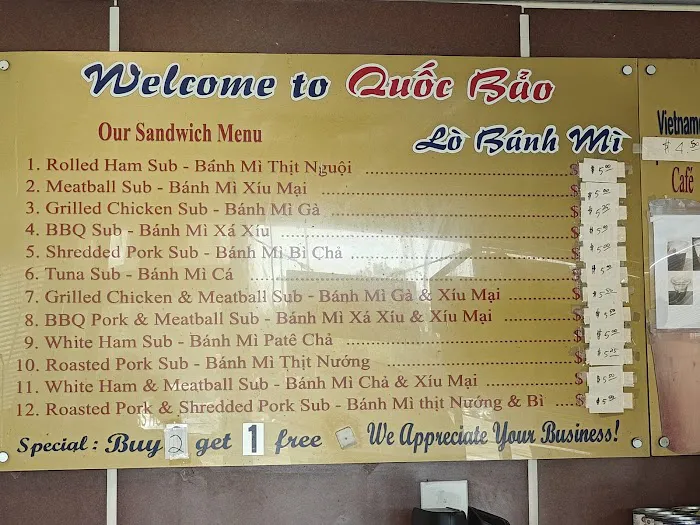 Welcome to Quốc Bảo
Our Sandwich Menu
Lò Bánh Mì
1. Rolled Ham Sub - Bánh Mì Thịt Nguội $ $5.00
2. Meatball Sub - Bánh Mì Xíu Mại $ $5.00
3. Grilled Chicken Sub - Bánh Mì Gà $
4. BBQ Sub - Bánh Mì Xá Xíu $
5. Shredded Pork Sub - Bánh Mì Bì Chả $
6. Tuna Sub - Bánh Mì Cá $
7. Grilled Chicken & Meatball Sub - Bánh Mì Gà & Xíu Mại $
8. BBQ Pork & Meatball Sub - Bánh Mì Xá Xíu & Xíu Mại $
9. White Ham Sub - Bánh Mì Patê Chả $
10. Roasted Pork Sub - Bánh Mì Thịt Nướng $
11. White Ham & Meatball Sub - Bánh Mì Chả & Xíu Mại $
12. Roasted Pork & Shredded Pork Sub - Bánh Mì thịt Nướng & Bì $
Special : Buy 2 get 1 free We Appreciate Your Business!
Vietname
Café